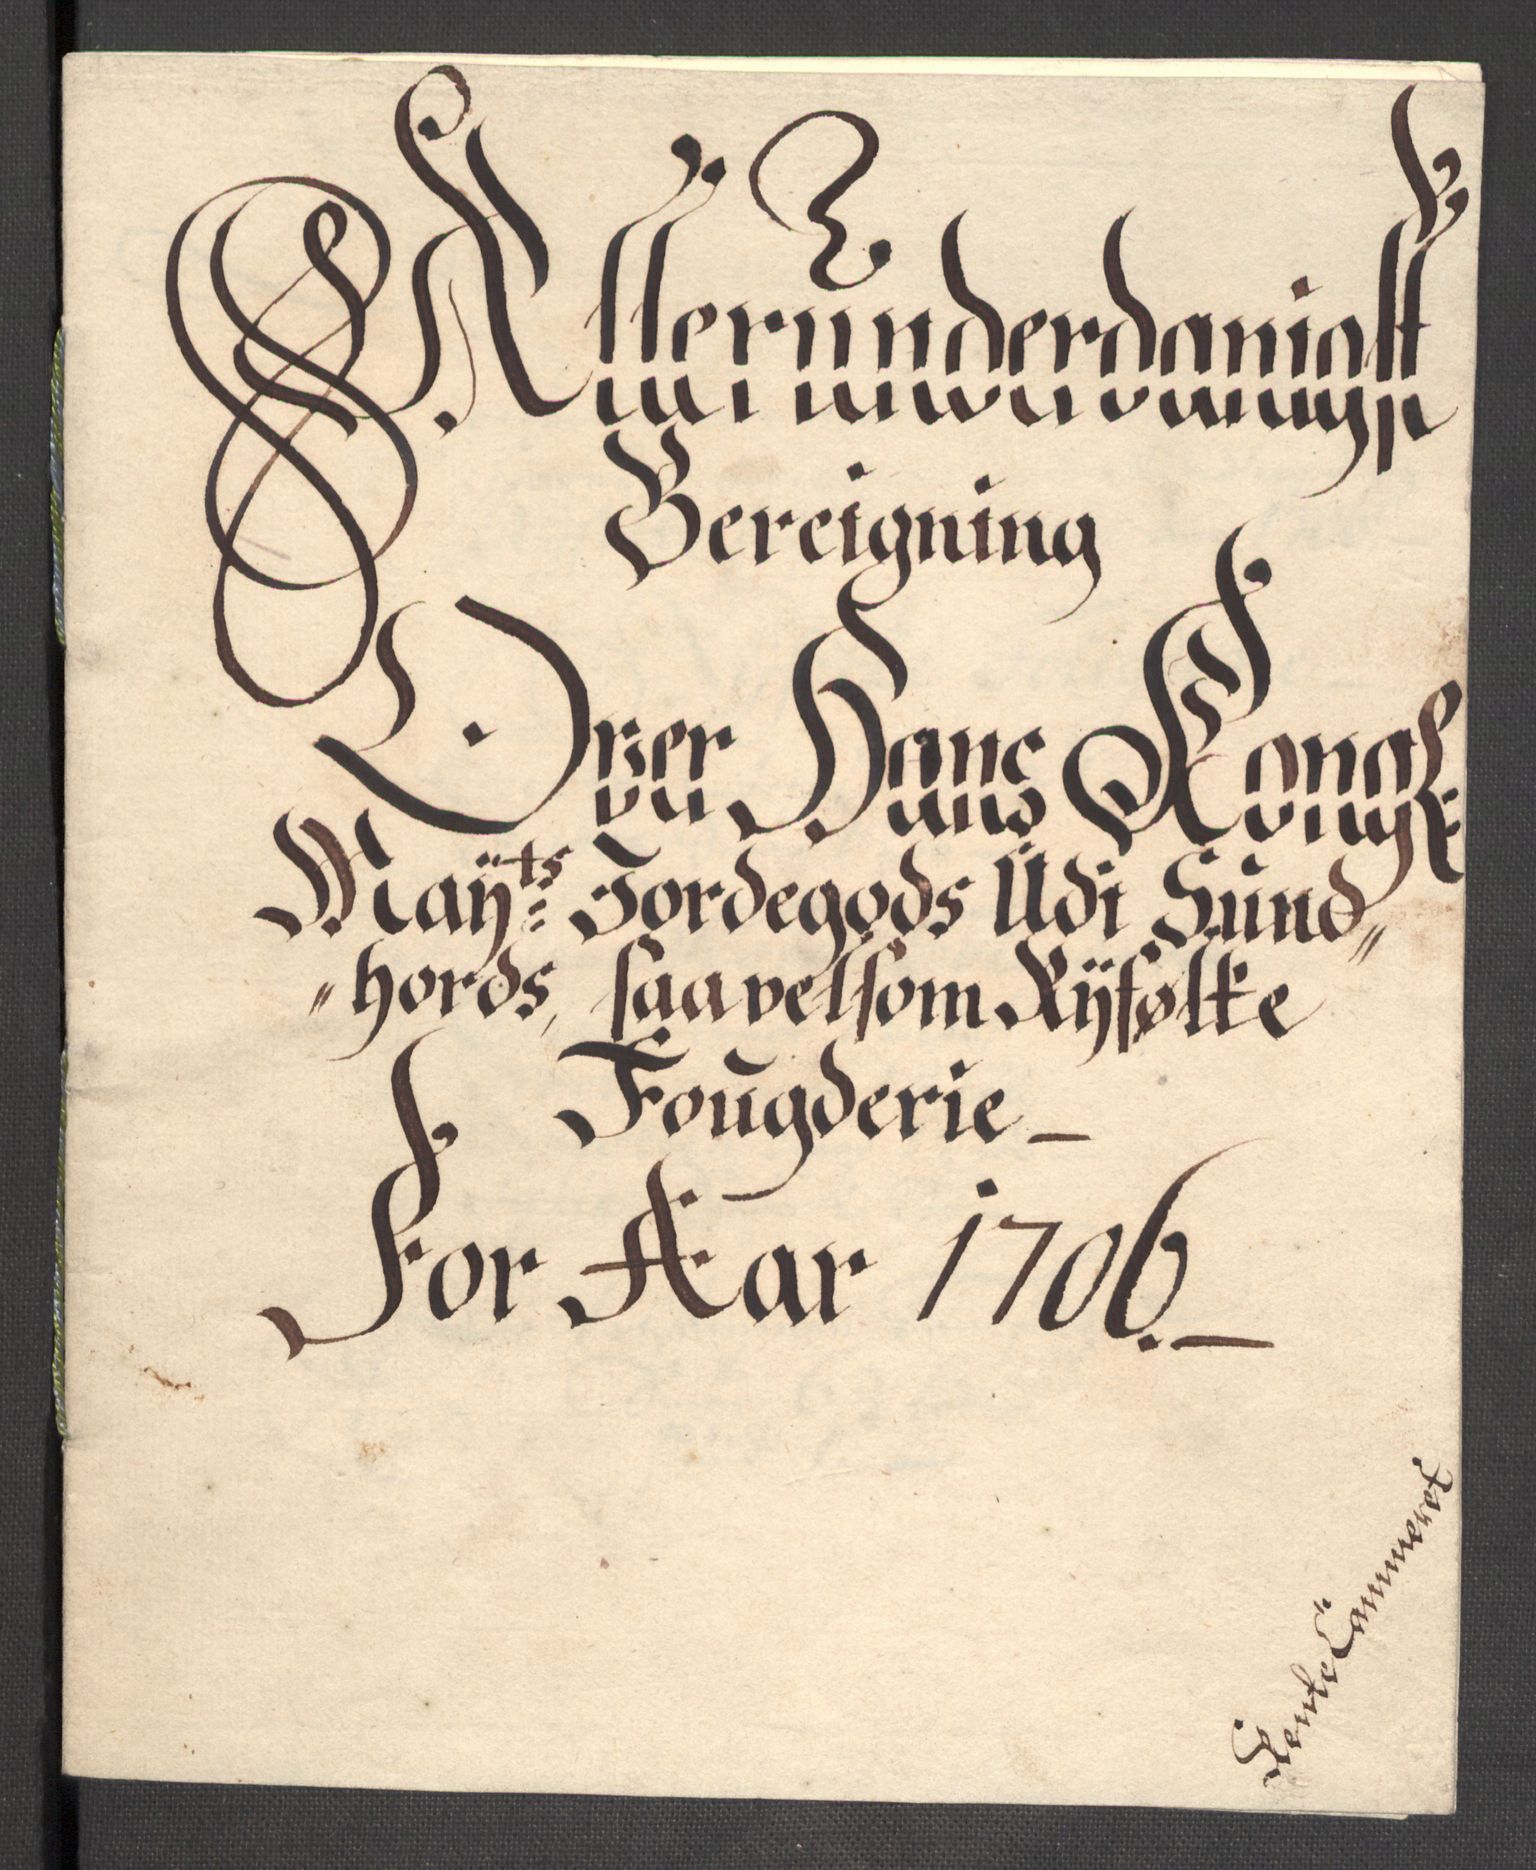 Allerunderdanigst
Bereigning
Over Hans Kongl:
Maÿts: Jordegods Udi Sund„
„hords, saavelsom Rÿfølke
Fougderie –
For Aar 1706. –
Rente Cammeret